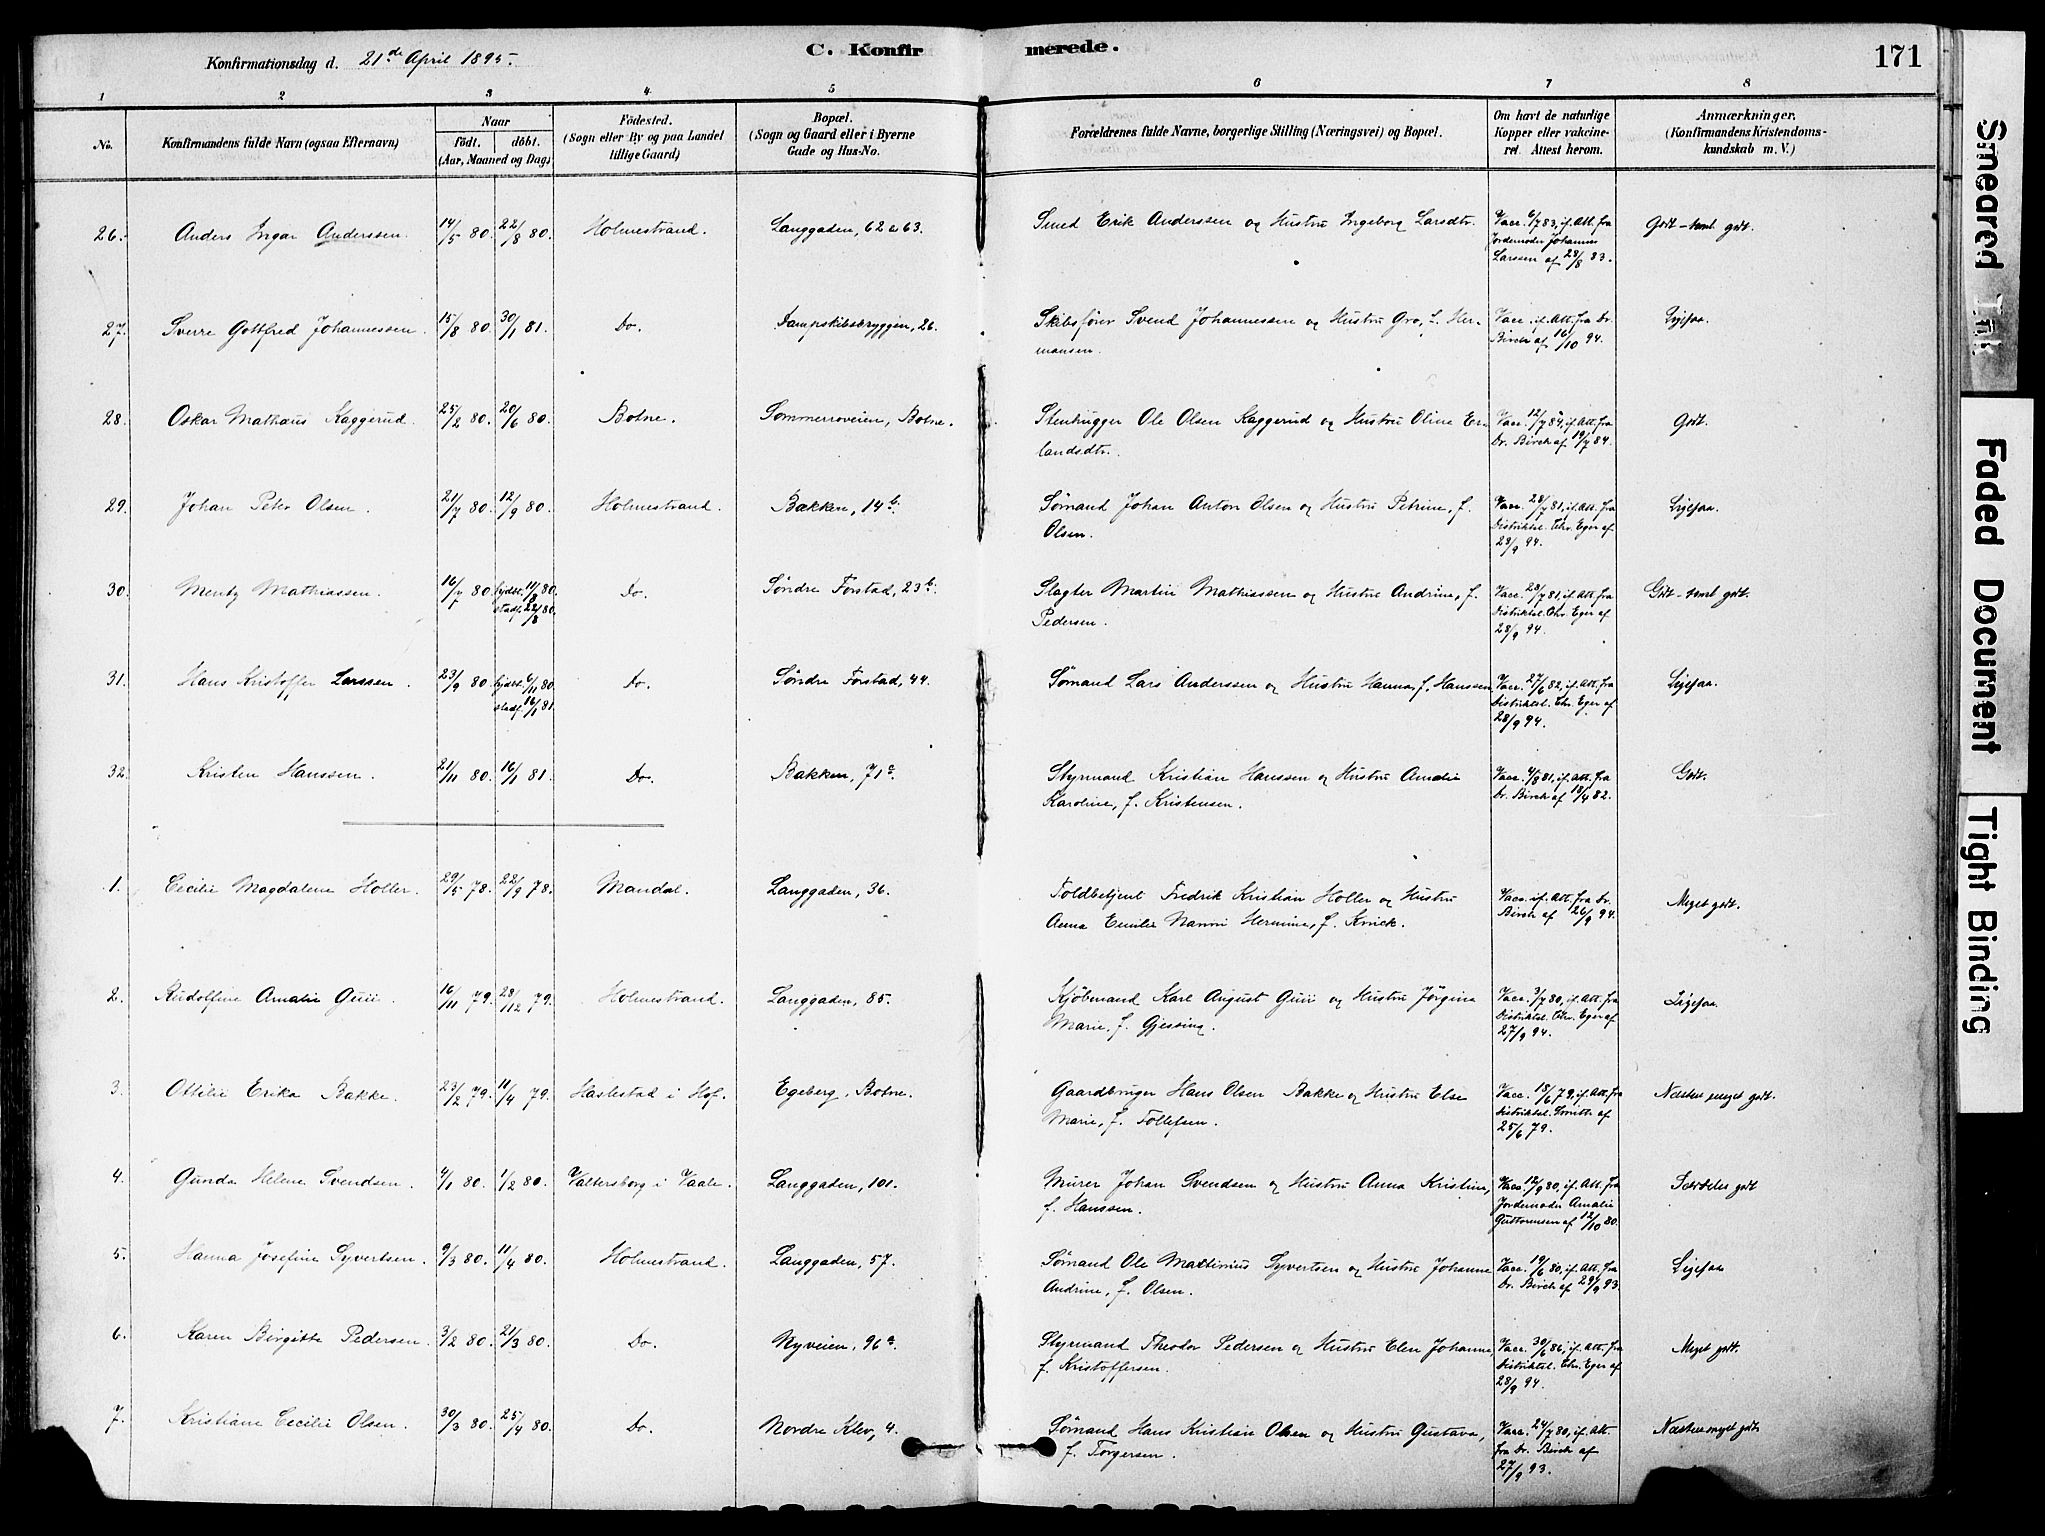 Konfirmationsdag d. 21de April 1895.
C. Konfirmerede.
171
1 2 3 4 5 6 7 8
No.
Konfirmandens fulde Navn (ogsaa Efternavn)
Naar
födt. döbt.
(Aar, Maaned og Dag)
Födested.
(Sogn eller By og paa Landet
tillige Gaard)
Bopæl.
(Sogn og Gaard eller i Byerne
Gade og Hus-No.
Forældrenes fulde Navne, borgerlige Stilling (Næringsvei) og Bopæl.
Om havt de naturlige
Kopper eller vakcine-
ret. Attest herom.
Anmærkninger.
(Konfirmandens Kristendoms-
kundskab m. V.)
26. Anders Ingar Anderssen. 14/5 80. 22/8 80. Holmestrand. Langgaden, 62 & 63. Smed Erik Anderssen og Hustru Ingeborg Larsdtr. Vacc. 6/7 83, if. Att. fra
Jordemoder Johannes
Larssen af 28/8 83.
Godt - temt godt.
27. Sverre Gottfred Johannessen. 15/8 80. 30/1 81. Do. Dampskibsbryggen, 26. Skibsfører Svend Johannessen og Hustru Gro, f. Her-
mansen.
Vacc. if. Att. fra Dr.
Birch af 16/10 94.
Ligesaa.
28. Oskar Mathæus Kaggerud. 25/2 80. 20/6 80. Botne. Sommerroveien, Botne. Stenhugger Ole Olsen Kaggerud og Hustru Oline Er-
landsdtr.
Vacc. 12/7 84, if. Att. fra
Dr. Birch af 19/7 84.
Godt.
29. Johan Peter Olsen. 21/7 80. 12/9 80. Holmestrand. Bakken, 14b. Sømand Johan Anton Olsen og Hustru Petrine, f.
Olsen.
Vacc. 28/7 81, if. Att. fra
Distriktsl. Chr. Eger af
28/9 94.
Ligesaa.
30. Mentz Mathiassen. 16/7 80. hjdbt. 11/8 80.
stadf. 22/8 80.
Do. Søndre Forstad, 23b. Slagter Martin Mathiassen og Hustru Andrine, f.
Pedersen.
Vacc. 28/7 81, if. Att. fra
Distriktsl. Chr. Eger af
28/9 94.
Godt - temt godt.
31. Hans Kristoffer Larssen. 23/9 80. hjdbt. 6/11 80.
stadf. 16/1 81.
Do. Søndre Forstad, 44. Sømand Lars Anderssen og Hustru Hanna, f. Hanssen. Vacc. 27/6 82, if. Att. fra
Distriktsl. Chr. Eger af
28/9 94.
Ligesaa.
32. Kristen Hanssen. 21/11 80. 16/1 81. Do. Bakken, 71a. Styrmand Kristian Hanssen og Hustru Amalie
Karoline, f. Kristensen.
Vacc. 4/8 81, if. Att. fra
Dr. Birch af 18/4 82.
Godt.
1. Cecilie Magdalene Holler. 29/5 78. 22/9 78. Mandal. Langgaden, 36. Toldbetjent Fredrik Kristian Holler og Hustru
Anna Emilie Nanni Hermine, f. Knick.
Vacc. if. Att. fra Dr.
Birch af 26/9 94.
Meget godt.
2. Rudolfine Amalie Guii. 16/11 79. 28/12 79. Holmestrand. Langgaden, 85. Kjøbmand Karl August Guii og Hustru Jørgine
Marie, f. Gjessing.
Vacc. 3/7 80, if. Att. fra
Distriktsl. Chr. Eger af
27/9 94.
Ligesaa.
3. Ottilie Erika Bakke. 23/2 79. 11/4 79. Haslestad i Hof. Egeberg, Botne. Gaardbruger Hans Olsen Bakke og Hustru Else
Marie, f. Tollefsen.
Vacc. 18/6 79, if. Att. fra
Distriktsl. Smith af
25/6 79.
Næsten meget godt.
4. Gunda Helene Svendsen. 4/1 80. 1/2 80. Valtersborg i Vaale. Langgaden, 101. Murer Johan Svendsen og Hustru Anna Kristine,
f. Hanssen.
Vacc. 12/9 80, if. Att. fra
Jordemoder Amalie
Guttormsen af 12/10 80.
Særdeles godt
5. Hanna Josefine Syvertsen. 9/3 80. 11/4 80. Holmestrand. Langgaden, 57. Sømand Ole Martinius Syvertsen og Hustru Johanne
Andrine, f. Olsen.
Vacc. 19/6 80, if. Att. fra
Dr. Birch af 29/9 93.
Ligesaa
6. Karen Birgitte Pedersen. 3/2 80. 21/3 80. Do. Nyveien, 96a. Styrmand Theodor Pedersen og Hustru Elen Johanne,
f. Kristoffersen.
Vacc. 30/6 86, if. Att. fra
Distriktsl. Chr. Eger af
28/9 94.
Meget godt.
7. Kristiane Cecilie Olsen. 30/3 80. 25/4 80. Do. Nordre Klev, 4. Sømand Hans Kristian Olsen og Hustru Gustava,
f. Torgersen.
Vacc. 24/7 80, if. Att.
fra Dr. Birch af
27/9 93.
Næsten meget godt.
Smeared Ink
Faded Document
Tight Binding